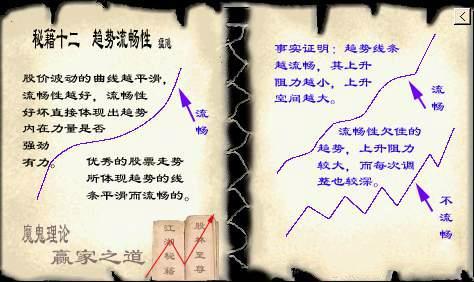 秘籍十二 趋势流畅性
股价波动的曲线越平滑，
流畅性越好，流畅性
好坏直接体现出趋势
内在力量是否
强劲
有力。
优秀的股票走势
所体现趋势的线
条平滑而流畅的。
流
畅
魔鬼理论
赢家之道
江湖秘籍
股林至尊
事实证明：趋势线条
越流畅，其上升
阻力越小，上升
空间越大。
流
畅
流畅性欠佳的
趋势，上升阻力
较大，而每次调
整也较深。
不
流
畅